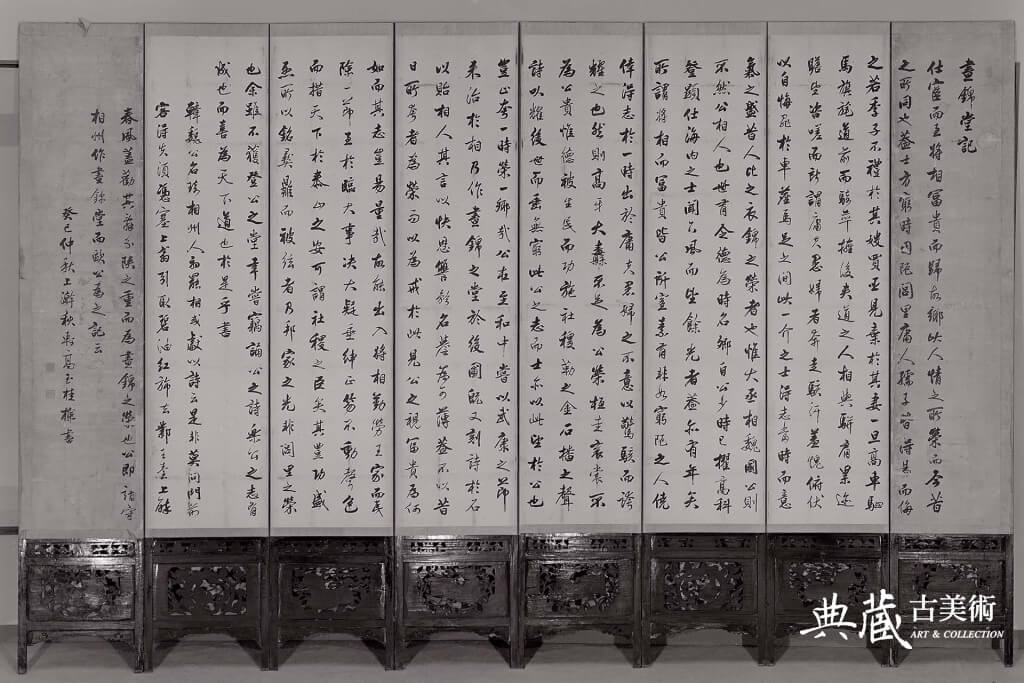 晝錦堂記
仕宦而至將相富貴而歸故鄉此人情之所榮而今昔
之所同也蓋士方窮時困阨閭里庸人孺子皆得易而侮
之若季子不禮於其嫂買臣見棄於其妻一旦高車駟
馬旗旄道前而騎卒擁後夾道之人相與駢肩累迹
瞻望咨嗟而所謂庸夫愚婦者奔走駭汗羞愧俯伏
以自悔罪於車塵馬足之間此一介之士得志當時而意
氣之盛昔人比之衣錦之榮者也惟大丞相魏國公則
不然公相人也世有令德為時名卿自公少時已擢高科
登顯仕海內之士聞下風而望餘光者蓋亦有年矣
所謂將相而富貴皆公所宜素有非如窮阨之人僥
倖得志於一時出於庸夫愚婦之不意以驚駭而誇
耀之也然則高牙大纛不足為公榮桓圭袞裳不
為公貴惟德被生民而功施社稷勒之金石播之聲
詩以耀後世而垂無窮此公之志而士亦以此望於公也
豈止夸一時榮一鄉哉公在至和中嘗以武康之節
來治於相乃作晝錦之堂於後圃既又刻詩於石
以貽相人其言以快恩讐矜名譽為可薄蓋不以昔
日所夸者為榮而以為戒於此見公之視富貴為何
如而其志豈易量哉故能出入將相勤勞王家而夷
險一節至於臨大事決大疑垂紳正笏不動聲色
而措天下於泰山之安可謂社稷之臣矣其豐功盛
烈所以銘彝鼎而被絃者乃邦家之光非閭里之榮
也余雖不獲登公之堂幸嘗竊誦公之詩樂公之志有
成也而喜為天下道也於是乎書
韓魏公名琦相州人初罷相或獻以詩云是非莫問門前
客得失須憑塞上翁引取碧油紅旆去鄴王臺上醉
春風蓋勸其分陝之重而為晝錦之榮也公即請守
相州作晝錦堂而歐公為之記云
癸巳仲秋上澣秋高玉桂樵書
典藏古美術
ART & COLLECTION